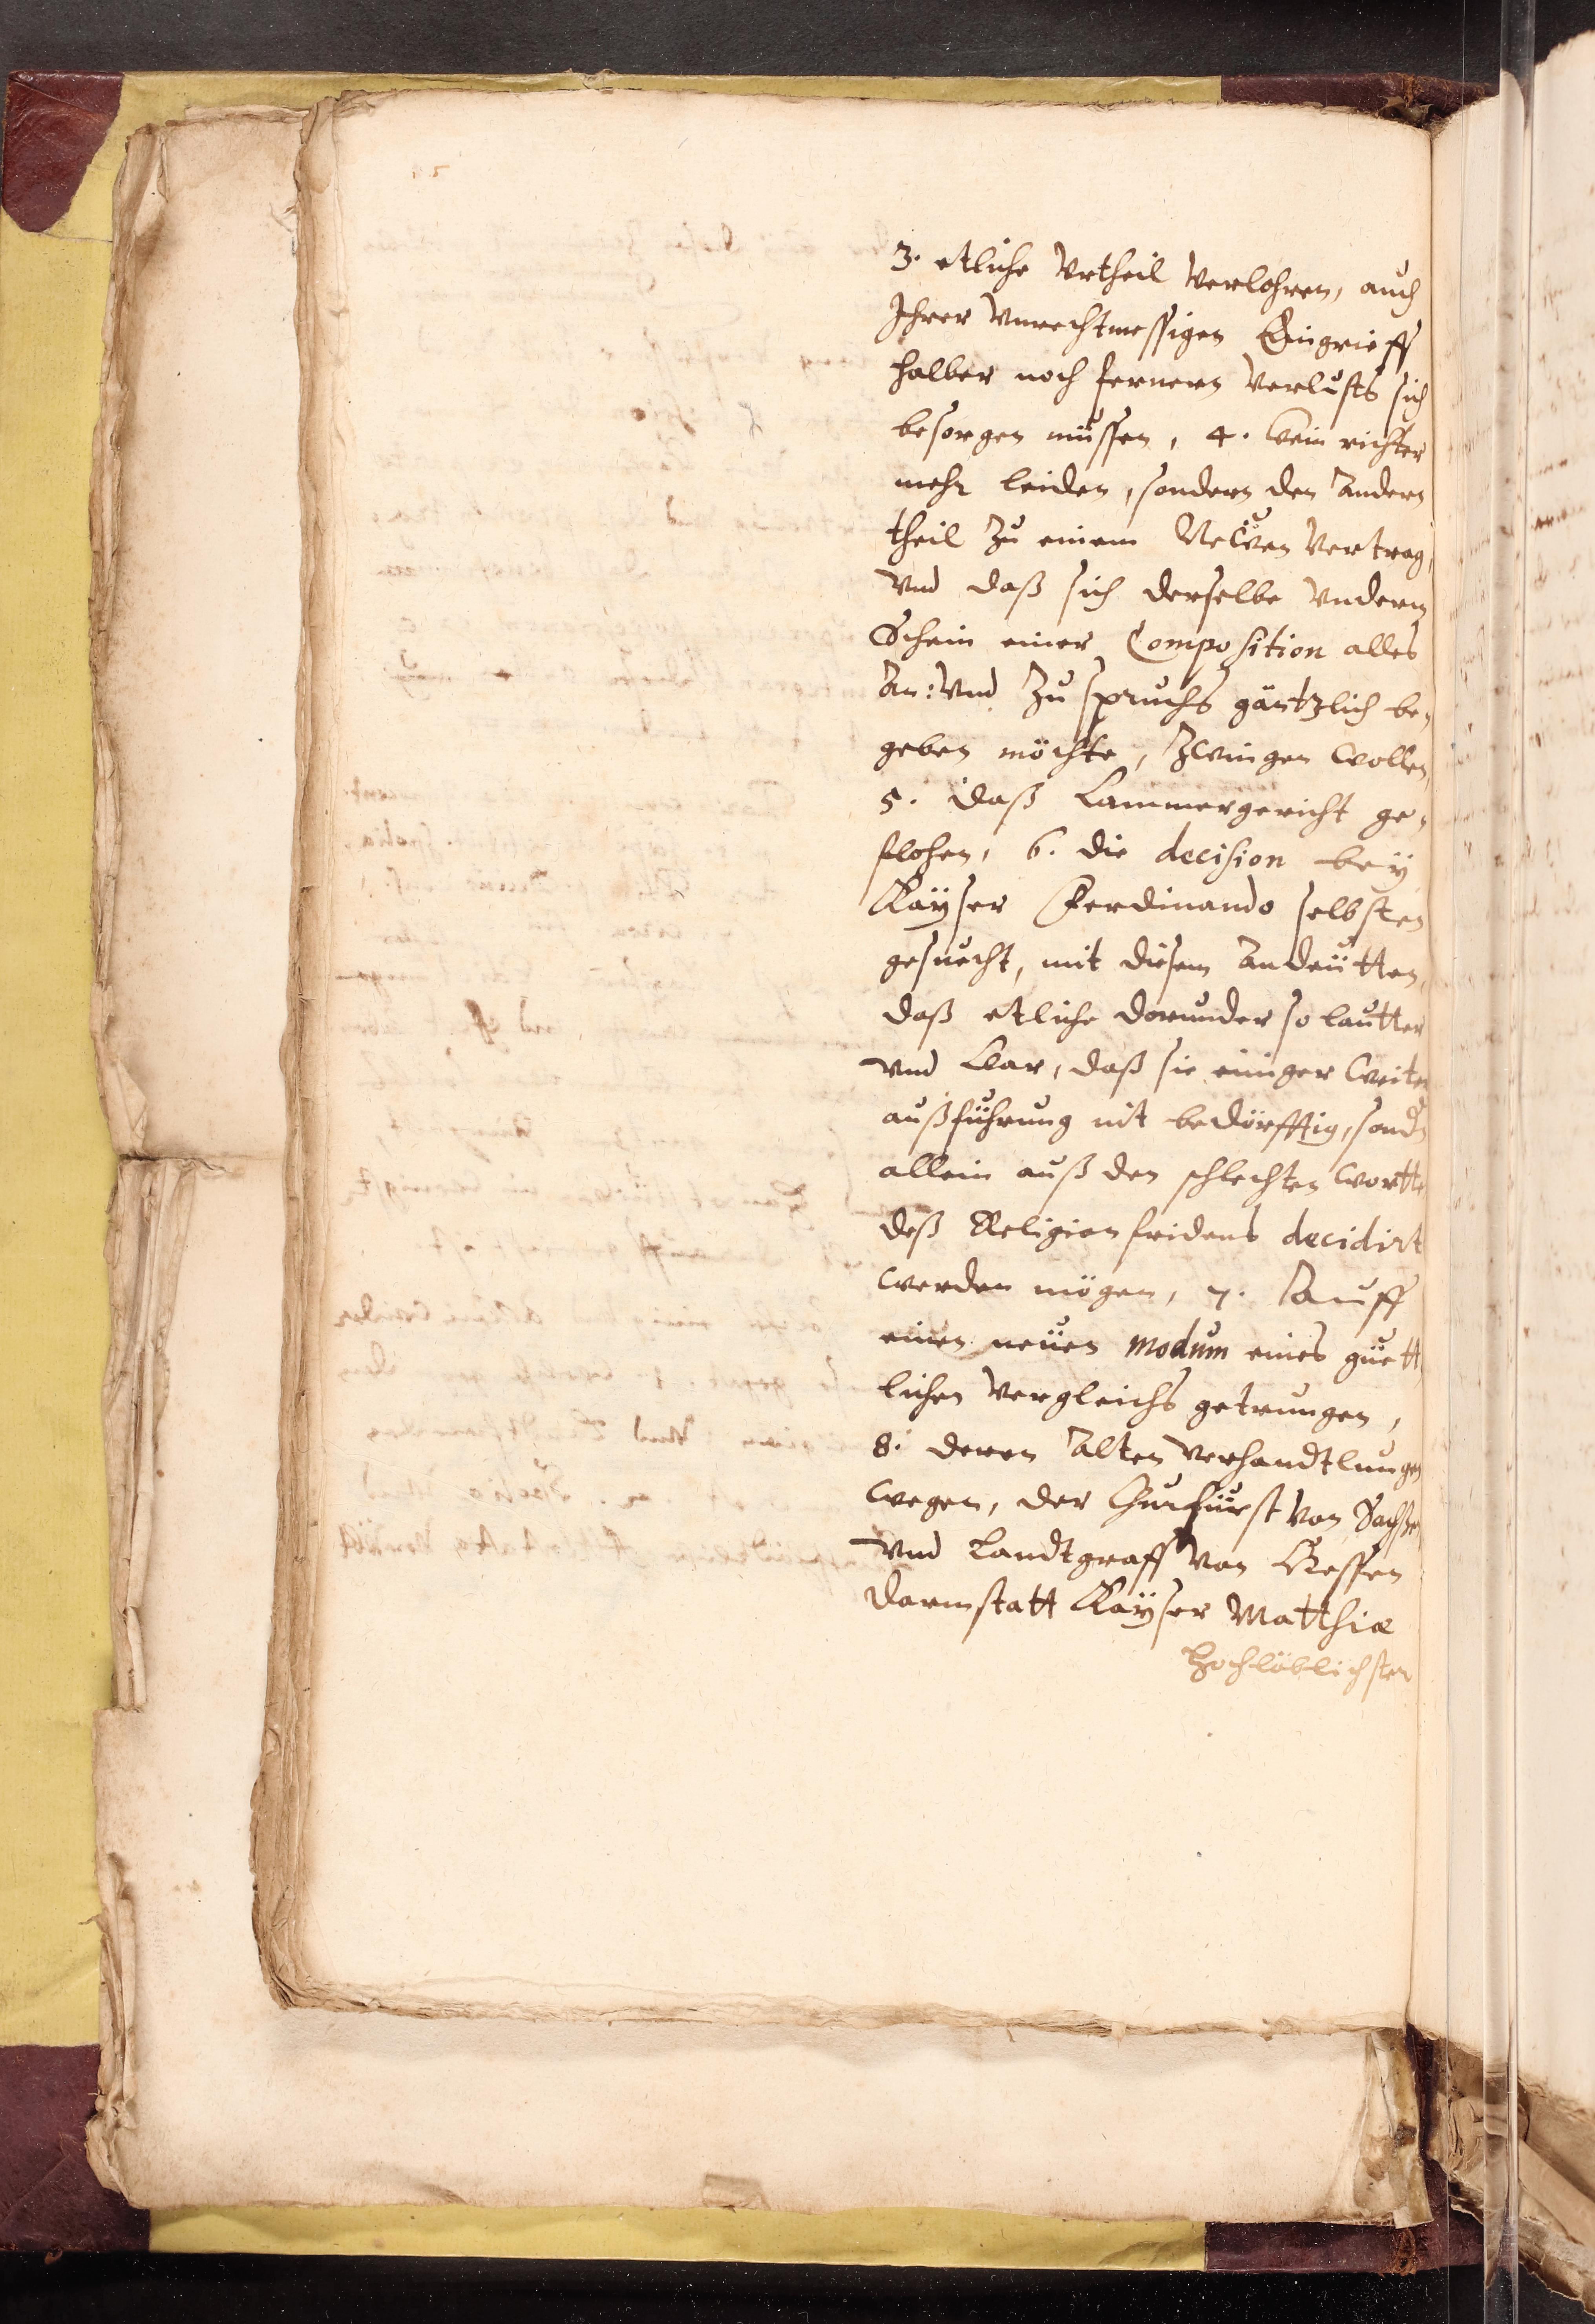 3. etliche Vrtheil Verlohren, auch
Ihrer Vnrechtmessigen Eingrieff
halber noch fernern Verlusts sich
besorgen müssen, 4. kein richter
mehr leiden, sondern den Andern
theil Zu einem Newen Vertrag,
Vnd daß sich derselbe Vnderm
Schein einer Composition alles
An: Vnd Zuspruchs gäntzlich be,
geben möchte, Zwingen wollen,
5. daß Cammergericht ge,
flohen, 6. die decision beÿ
Kaÿser Ferdinando selbsten
gesuecht, mit diesem Andeütten,
daß etliche darunder so lautter
vnd klar, daß sie einiger weiter
außführung nit bedörfftig, sond
allein auß den schlechten wortte
deß Religion fridens decidirt
werden mögen, 7. Auff
einen neüen modum eines güett
lichen Vergleichs getrungen,
8. deren Alten Verhandtlungen
wegen, der Churfürst Von Sachßen
vnd Landtgraff Von Hessen
darmstatt Kaÿser Matthiæ
hochlöblichster